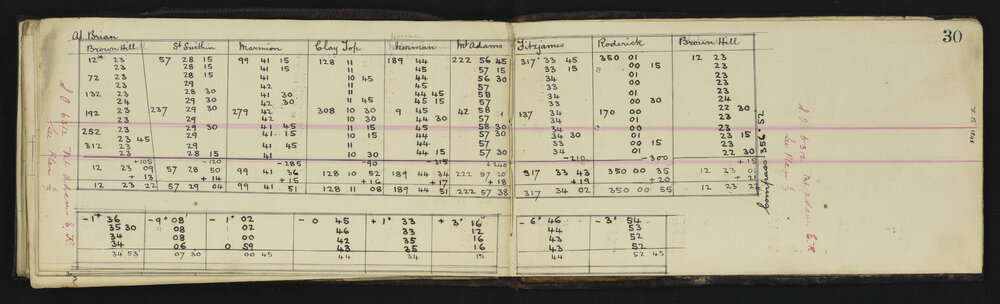 At Brian
30
Brown Hill St Swithin Marmion Clay Top Kearman Mt Adams Fitzjames Roderick Brown Hill
12° 23 57 28 15 99 41 15 128 11 189 44 222 56 45 317 33 45 350 01 12 23
23 28 15 41 15 11 45 57 15 33 15 00 15 23
72 23 28 15 41 10 45 44 56 30 34 00 23
23 29 42 11 45 57 33 01 23
132 23 28 30 41 11 44 45 58 34 00 23
24 29 30 42 30 11 45 45 15 57 33 00 30 24
192 23 237 29 30 279 42 308 10 30 9 45 42 58 137 34 170 00 22 30
23 29 42 10 30 44 30 57 33 01 23
252 23 29 30 41 45 11 15 45 58 30 34 00 23
23 45 29 41 15 10 15 44 57 30 34 30 01 23 15
312 23 29 41 45 11 45 57 34 00 15 23
23 28 15 41 10 30 44 15 57 30 34 01 22 30
+105 -120 -285 -90 -315 +240 -210 -300 +15
12 23 09 57 28 50 99 41 36 128 10 52 189 44 34 222 57 20 317 33 43 350 00 35 12 23 01
+13 +14 +15 +17 +18 +19 +20
12 23 22 57 29 04 99 41 51 128 11 08 189 44 51 222 57 38 317 34 02 350 00 55 12 23 22
Compass 356° 52
-1° 36 -9° 08 -1° 02 -0 45 +1° 33 +3° 16 -6° 46 -3° 54
35 30 08 02 46 33 12 44 53
34 08 00 42 35 16 43 52
34 06 0 59 43 35 16 43 52
34 53 07 30 00 45 44 34 15 44 52 45